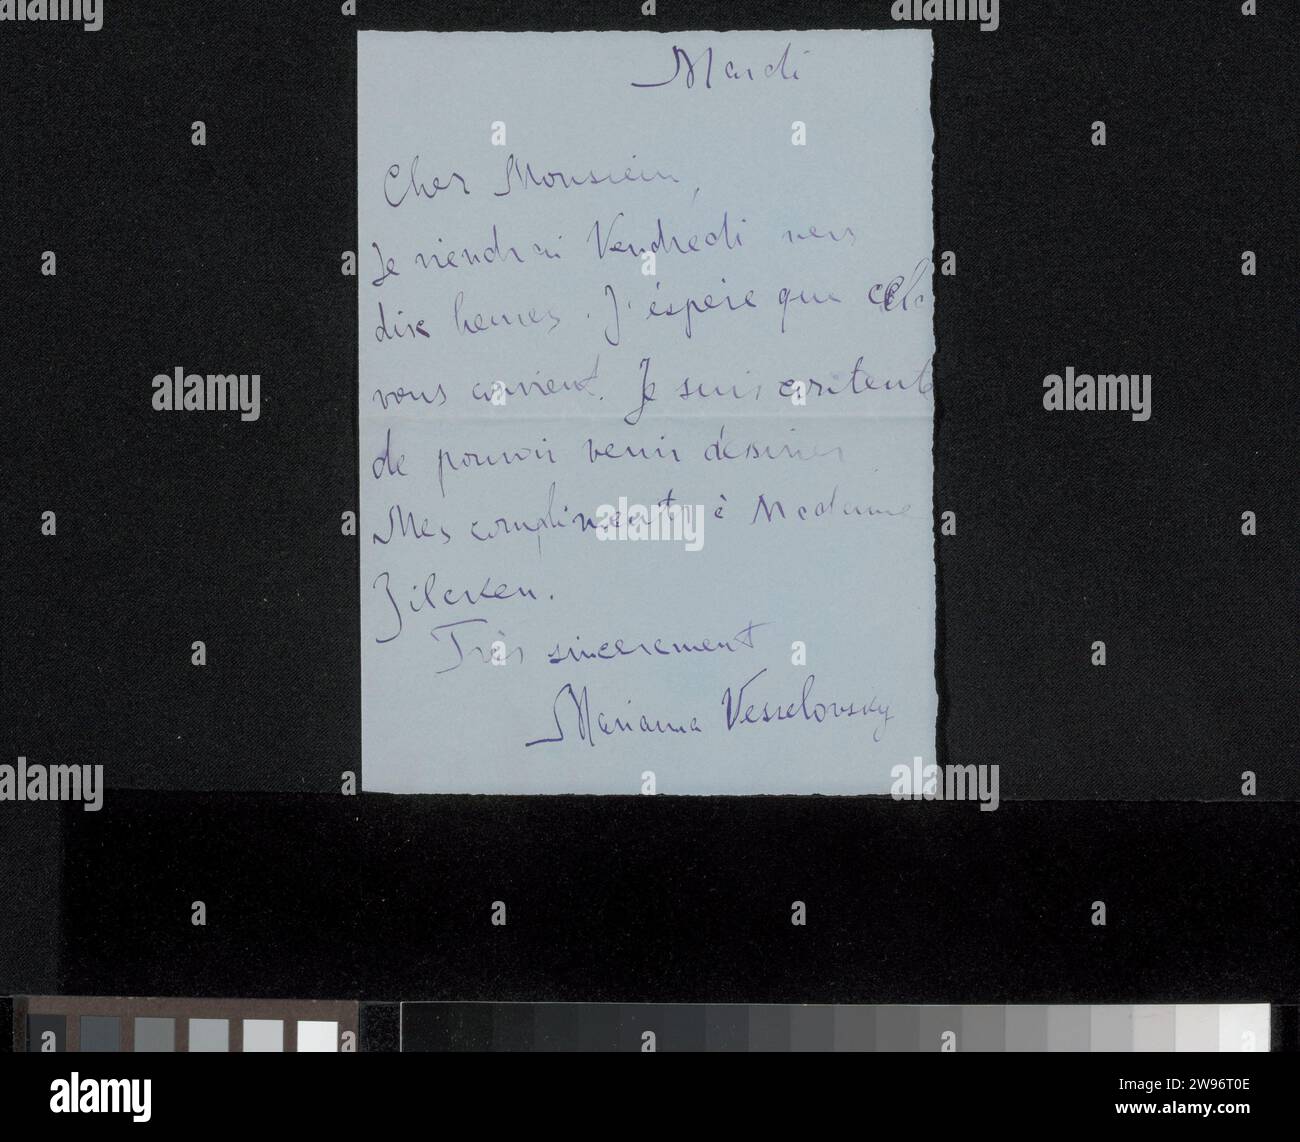 Mardi
Cher Monsieur,
Je viendrai Vendredi vers
dix heures. J'éspère que cela
vous convient. Je suis contente
de pouvoir venir déssiner
Mes compliments à Madame
Zilcken.
Très sincerement
Marianna Vesselovsky
alamy
Image ID: 2W96T0E
www.alamy.com